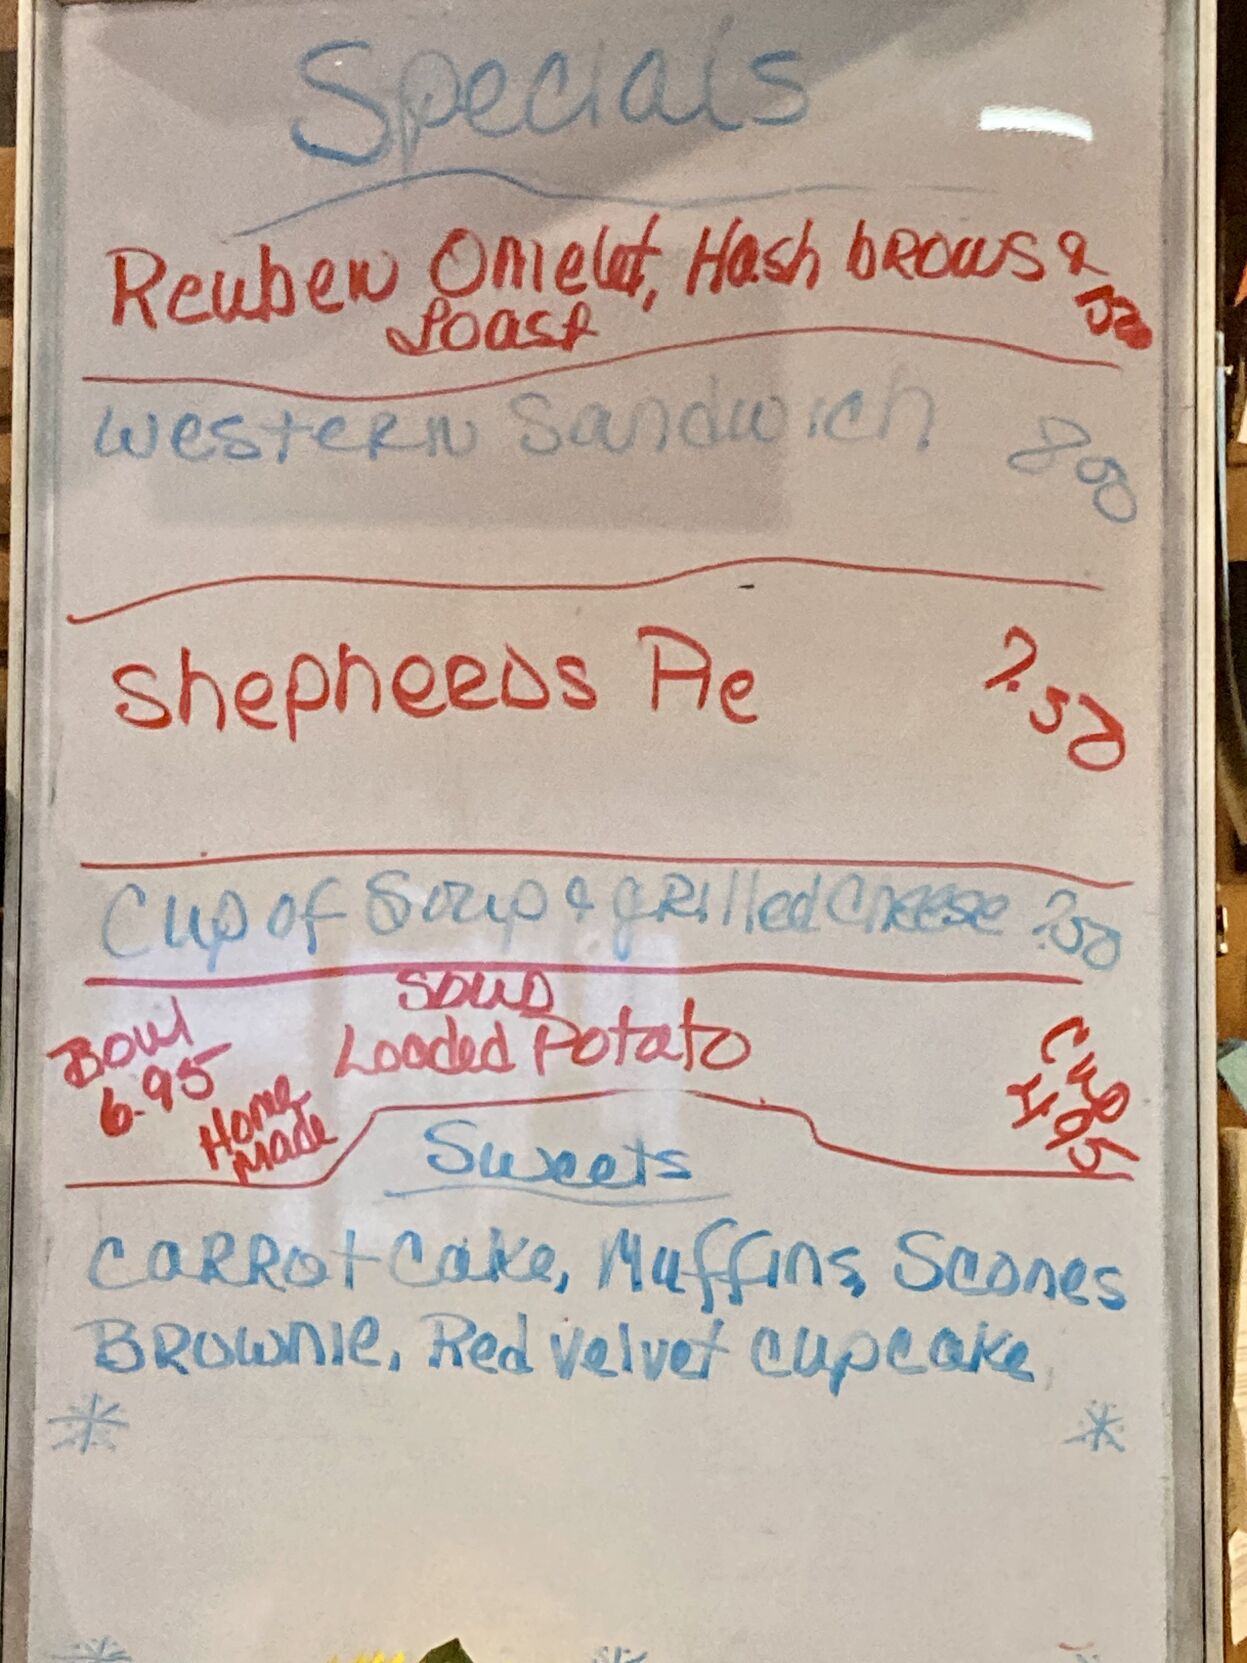 Specials
Reuben Omelet, Hash brows &
Toast
Western Sandwich 800
Shepheeds Pie 7.50
Cup of Soup & grilled Cheese 750
Soup
Bowl
6.95
Loaded Potato
Cup
4.95
Home
Made
Sweets
Carrot Cake, Muffins, Scones
Brownie, Red Velvet Cupcake